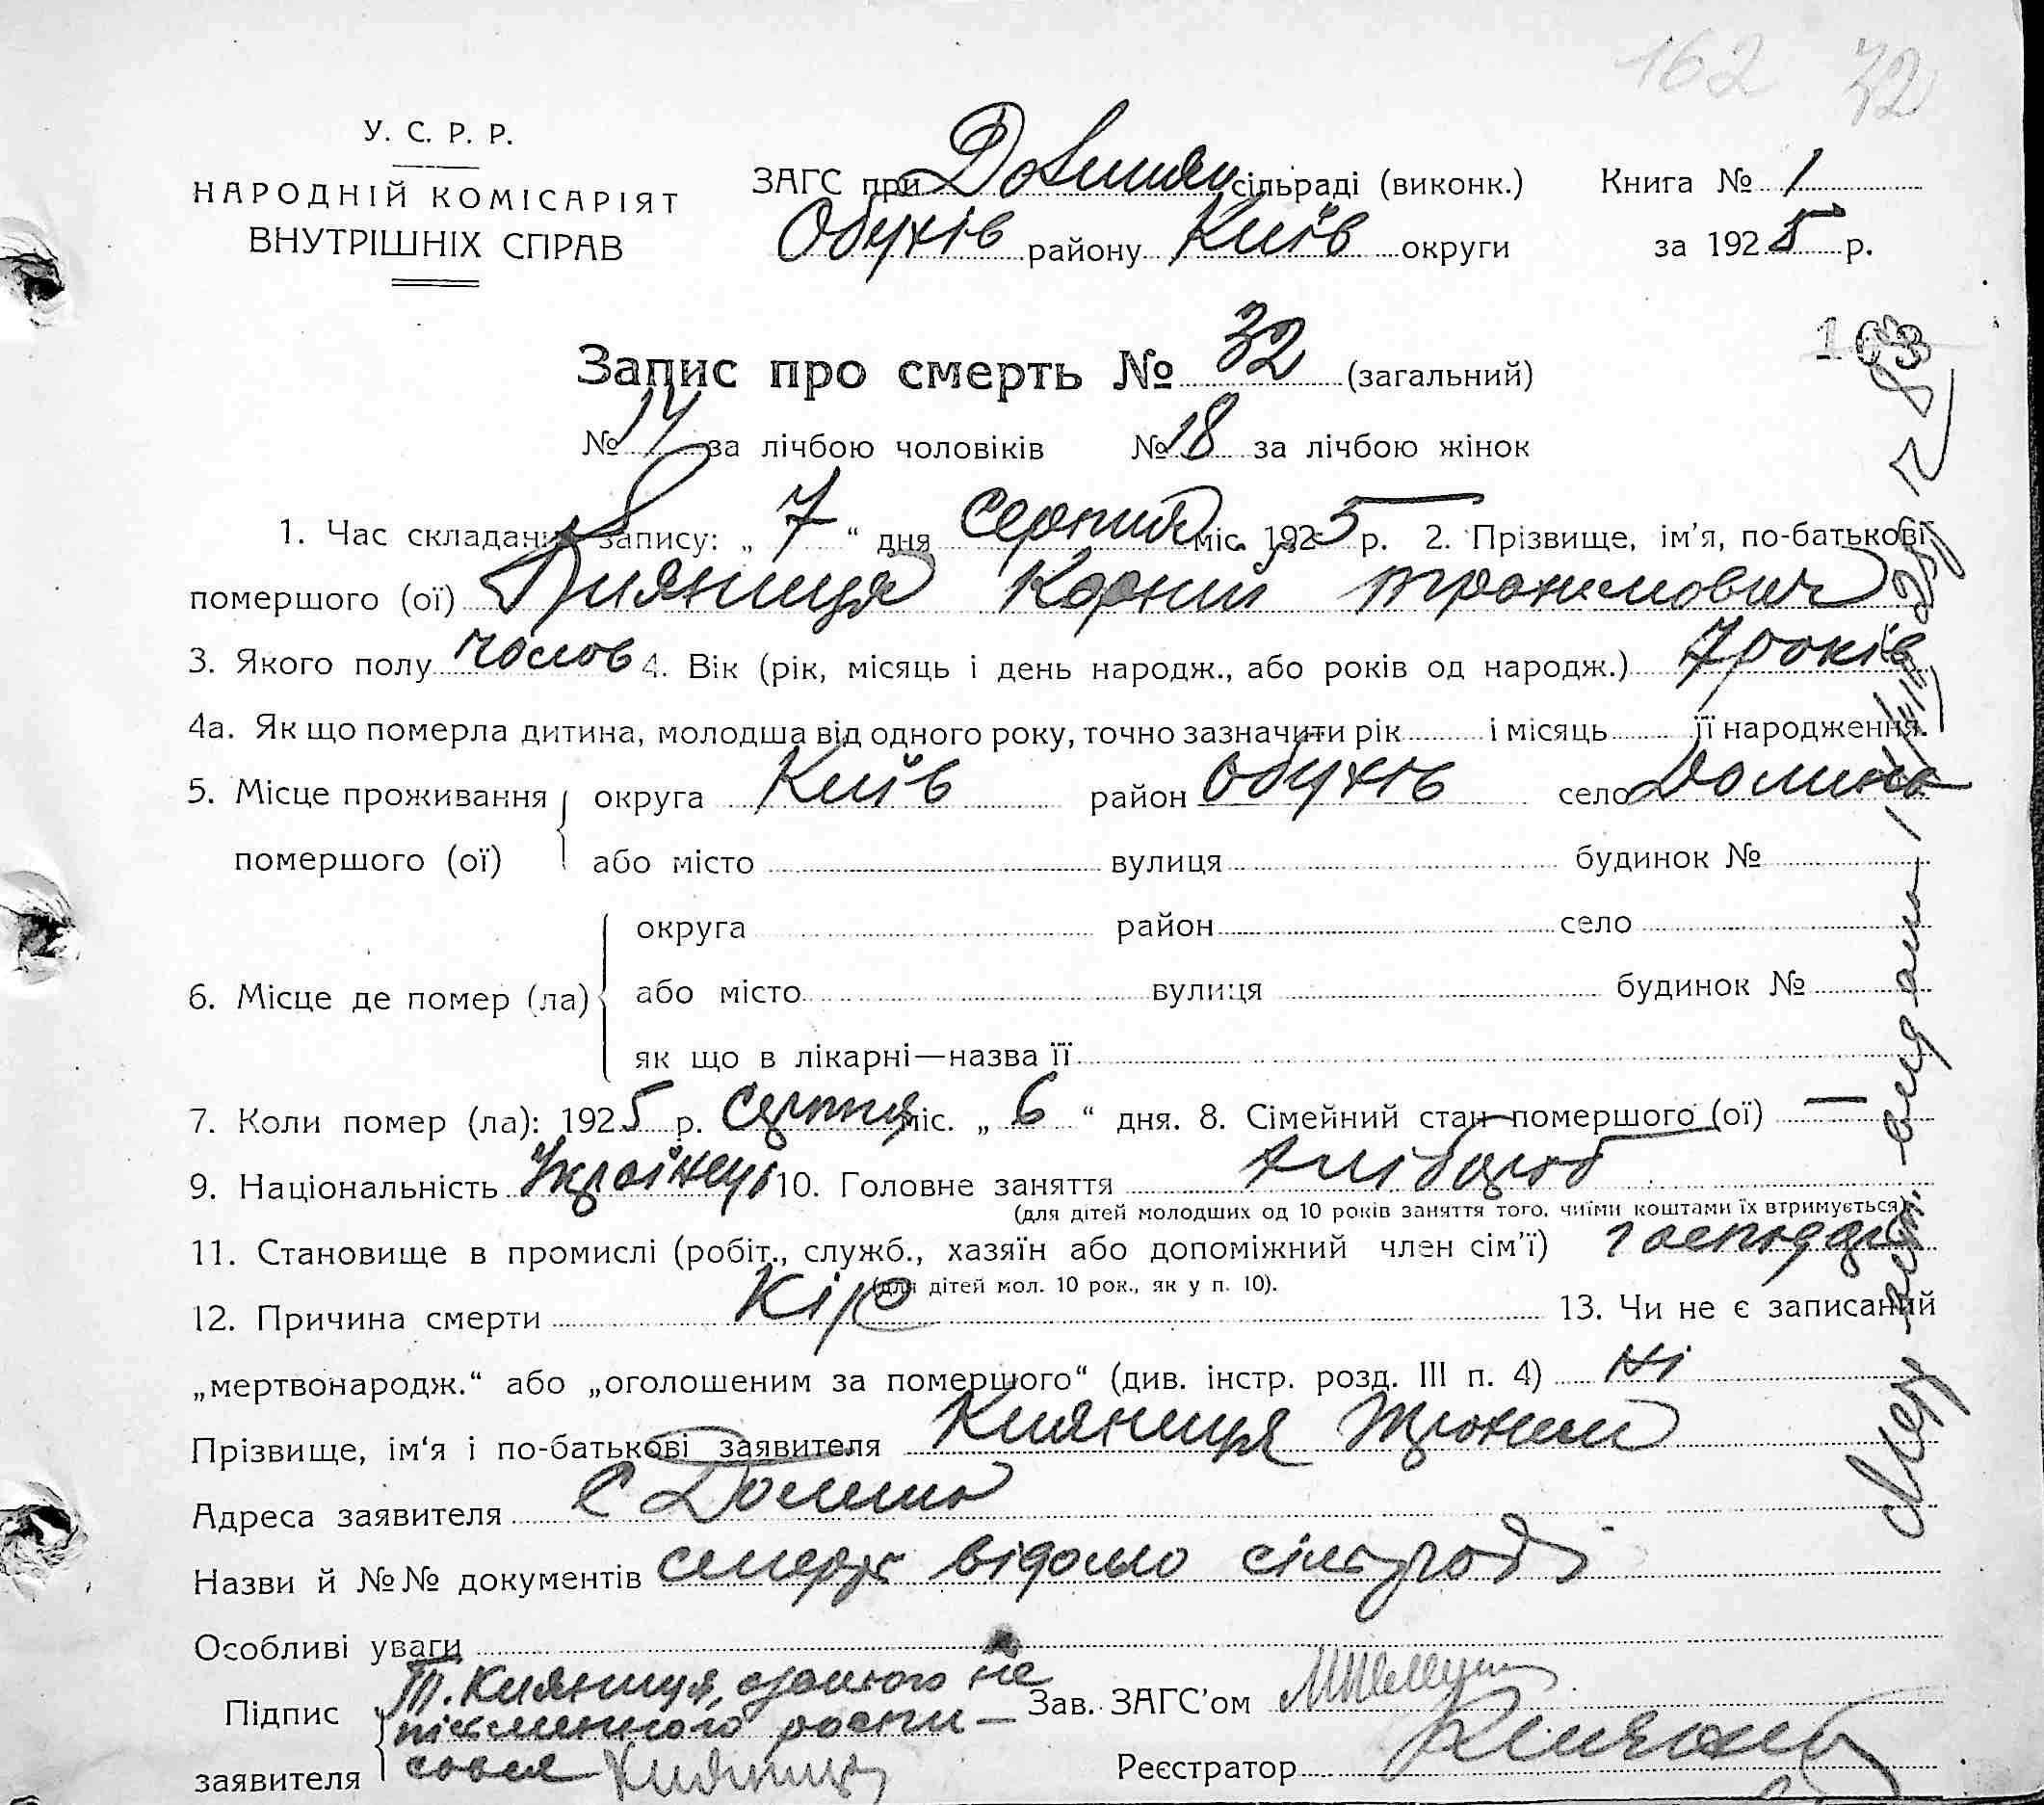 162 32
У. С. Р. Р.
НАРОДНІЙ КОМІСАРІЯТ
ВНУТРІШНІХ СПРАВ
ЗАГС при Долинян сільраді (виконк.) Книга № 1
Обухів району Київ округи за 1925 р.
163
Запис про смерть № 32 (загальний)
№ 14 за лічбою чоловіків № 18 за лічбою жінок
1. Час складання запису: „ 7 “ дня Серпня міс. 1925 р. 2. Прізвище, ім’я, по-батькові
помершого (ої) Кияниця Корний трохимович
3. Якого полу чолов 4. Вік (рік, місяць і день народж., або років од народж.) 7 років
4а. Як що померла дитина, молодша від одного року, точно зазначити рік і місяць її народження.
5. Місце проживання округа Київ район Обухів село Долина
помершого (ої) або місто вулиця будинок №
округа район село
6. Місце де помер (ла) або місто вулиця будинок №
як що в лікарні—назва її
7. Коли помер (ла): 1925 р. Серпня міс. „ 6 “ дня. 8. Сімейний стан помершого (ої) —
9. Національність Україньці 10. Головне заняття хлібороб
(для дітей молодших од 10 років заняття того, чиїми коштами їх втримується)
11. Становище в промислі (робіт., служб., хазяїн або допоміжний член сім’ї) господар
(для дітей мол. 10 рок., як у п. 10).
12. Причина смерти Кір 13. Чи не є записаний
„мертвонародж.“ або „оголошеним за помершого“ (див. інстр. розд. III п. 4) Ні
Прізвище, ім‘я і по-батькові заявителя Кияниця Трохим
Адреса заявителя С Долина
Назви й №№ документів смерть відомо сільраді
Особливі уваги
Підпис Т. Кияниця, а за його не Зав. ЗАГС’ом
письменного роспи—
заявителя сався Кияниця Реєстратор